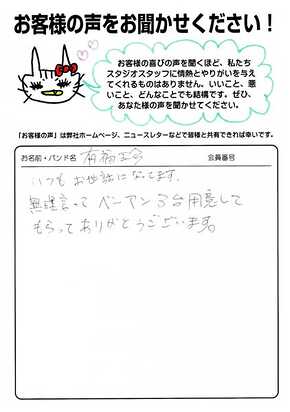 お客様の声をお聞かせください！
お客様の喜びの声を聞くほど、私たち
スタジオスタッフに情熱とやりがいを与え
てくれるものはありません。いいこと、悪
いこと、どんなことでも結構です。ぜひ、
あなた様の声を聞かせてください。
「お客様の声」は弊社ホームページ、ニュースレターなどで皆様と共有できれば幸いです。
お名前・バンド名 会員番号
いつもお世話になってます.
無理言って ベーアン 3台用意して
もらってありがとうございます。